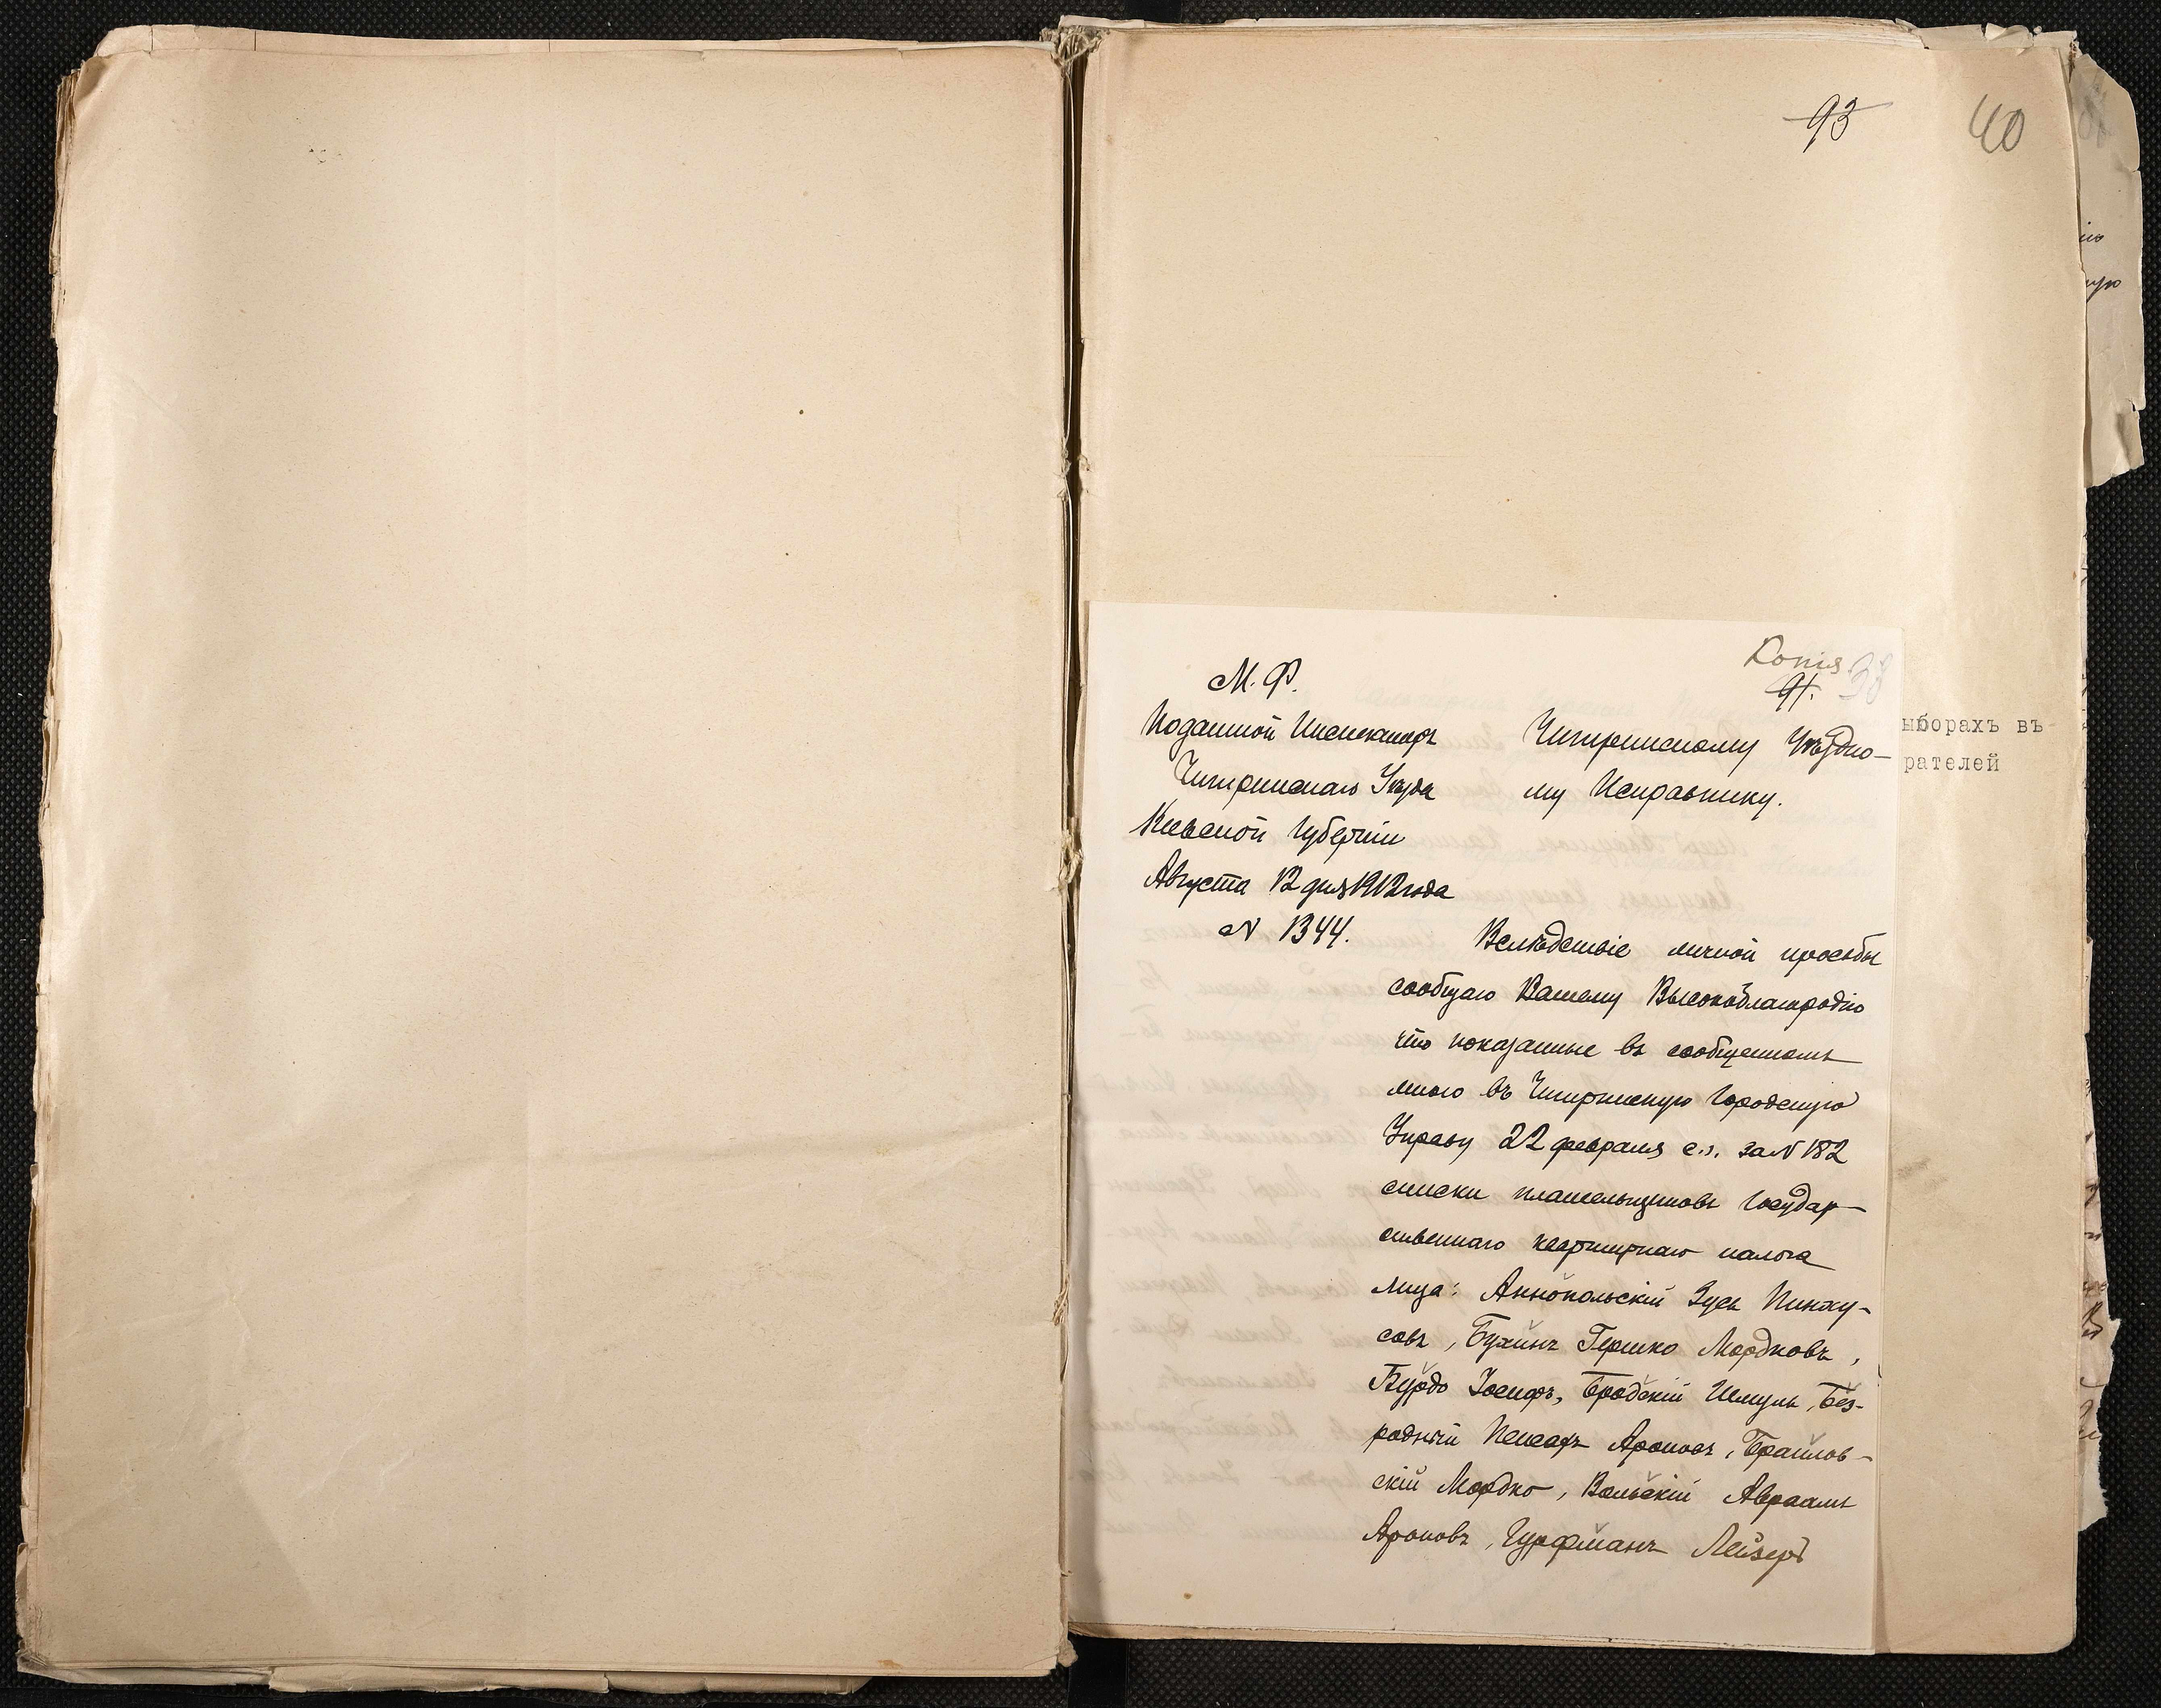 93
40
Копія
91. 38
М. Ф.
Податной Инспекторъ
Чигиринскаго Уѣзда
Кіевской Губерніи
Августа 12 дня 1912 года
N 1344.
Чигиринскому Уѣздно-
му Исправнику.
ыборахъ въ
рателей
Вслѣдствіе личной просьбы
сообщаю Вашему Высокоблагородію
что показанные въ сообщенномъ
мною въ Чигиринскую Городскую
Управу 22 февраля с.г. за N 182
списки плательщиковъ Государ-
ственнаго квартирнаго налога
лица: Аннопольскій Зусь Пинху-
совъ, Бухинъ Гершко Мордковъ,
Бурдо Іосифъ, Бродскій Шмуль, Без-
родный Пейсахъ Ароновъ, Браилов-
скій Мордко, Вольскій Авраамъ
Ароновъ, Гурфманъ Лейзеръ